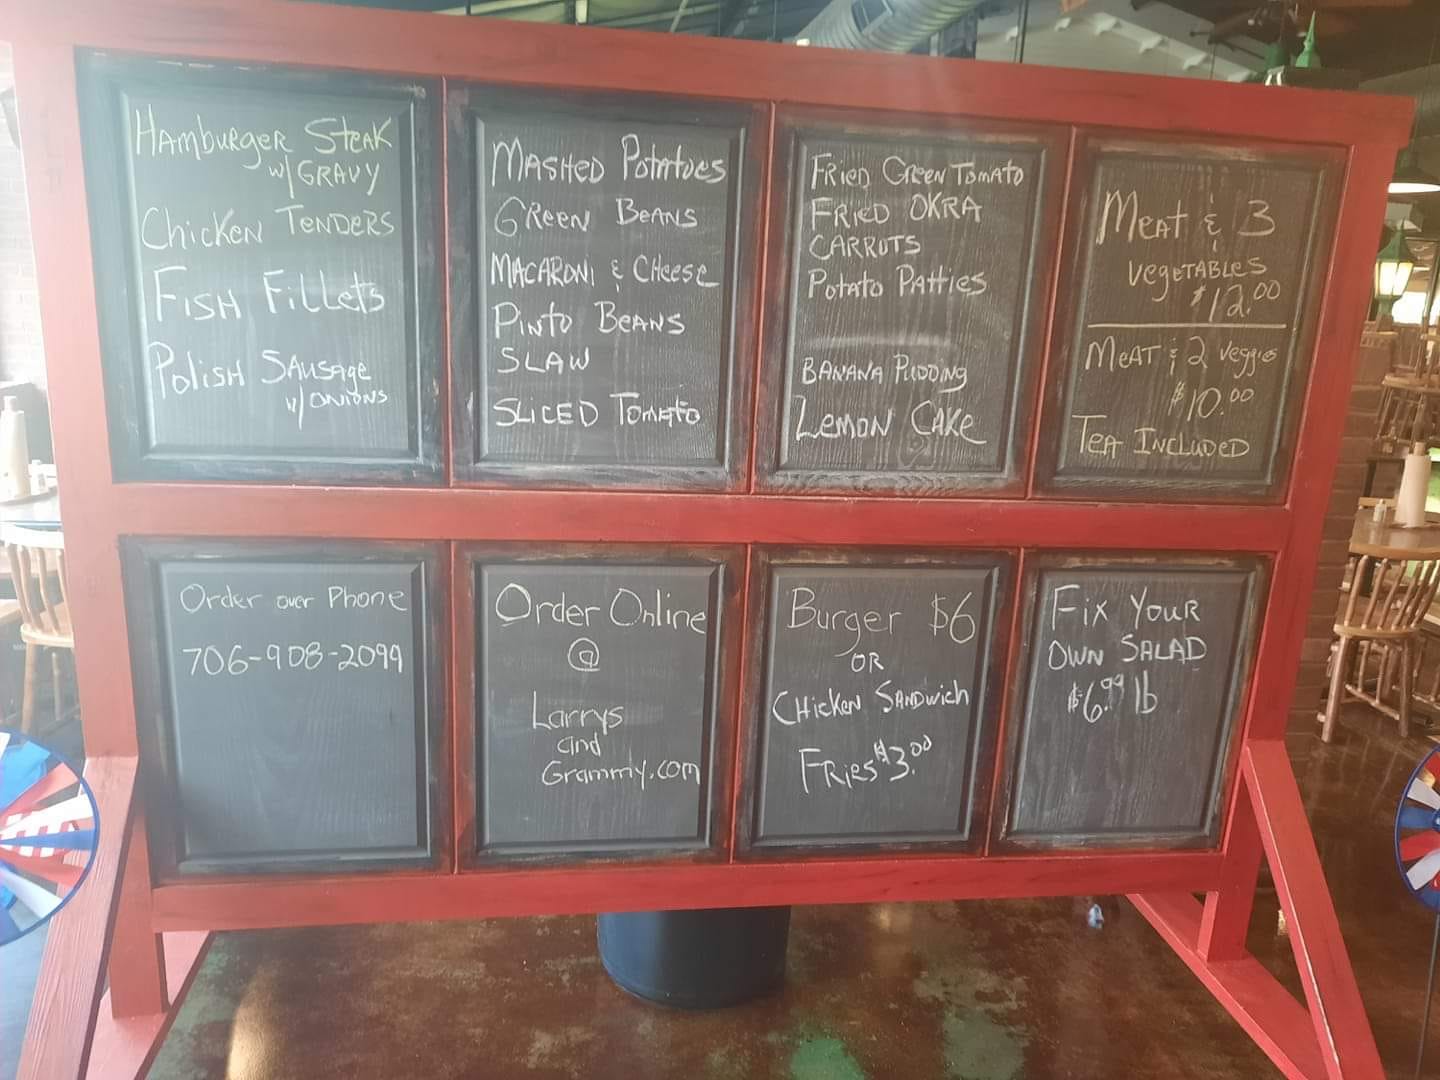 Hamburger Steak
w/ Gravy
Chicken Tenders
Fish Fillets
Polish Sausage
w/ Onions
Mashed Potatoes
Green Beans
Macaroni & Cheese
Pinto Beans
Slaw
Sliced Tomato
Fried Green Tomato
Fried Okra
Carrots
Potato Patties
Banana Pudding
Lemon Cake
Meat & 3
Vegetables
$12.00
Meat & 2 Veggies
$10.00
Tea Included
Order over Phone
706-908-2099
Order Online
@
Larrys
and
Grammy.com
Burger $6
OR
Chicken Sandwich
Fries $3.00
Fix Your
Own Salad
$6.99 lb